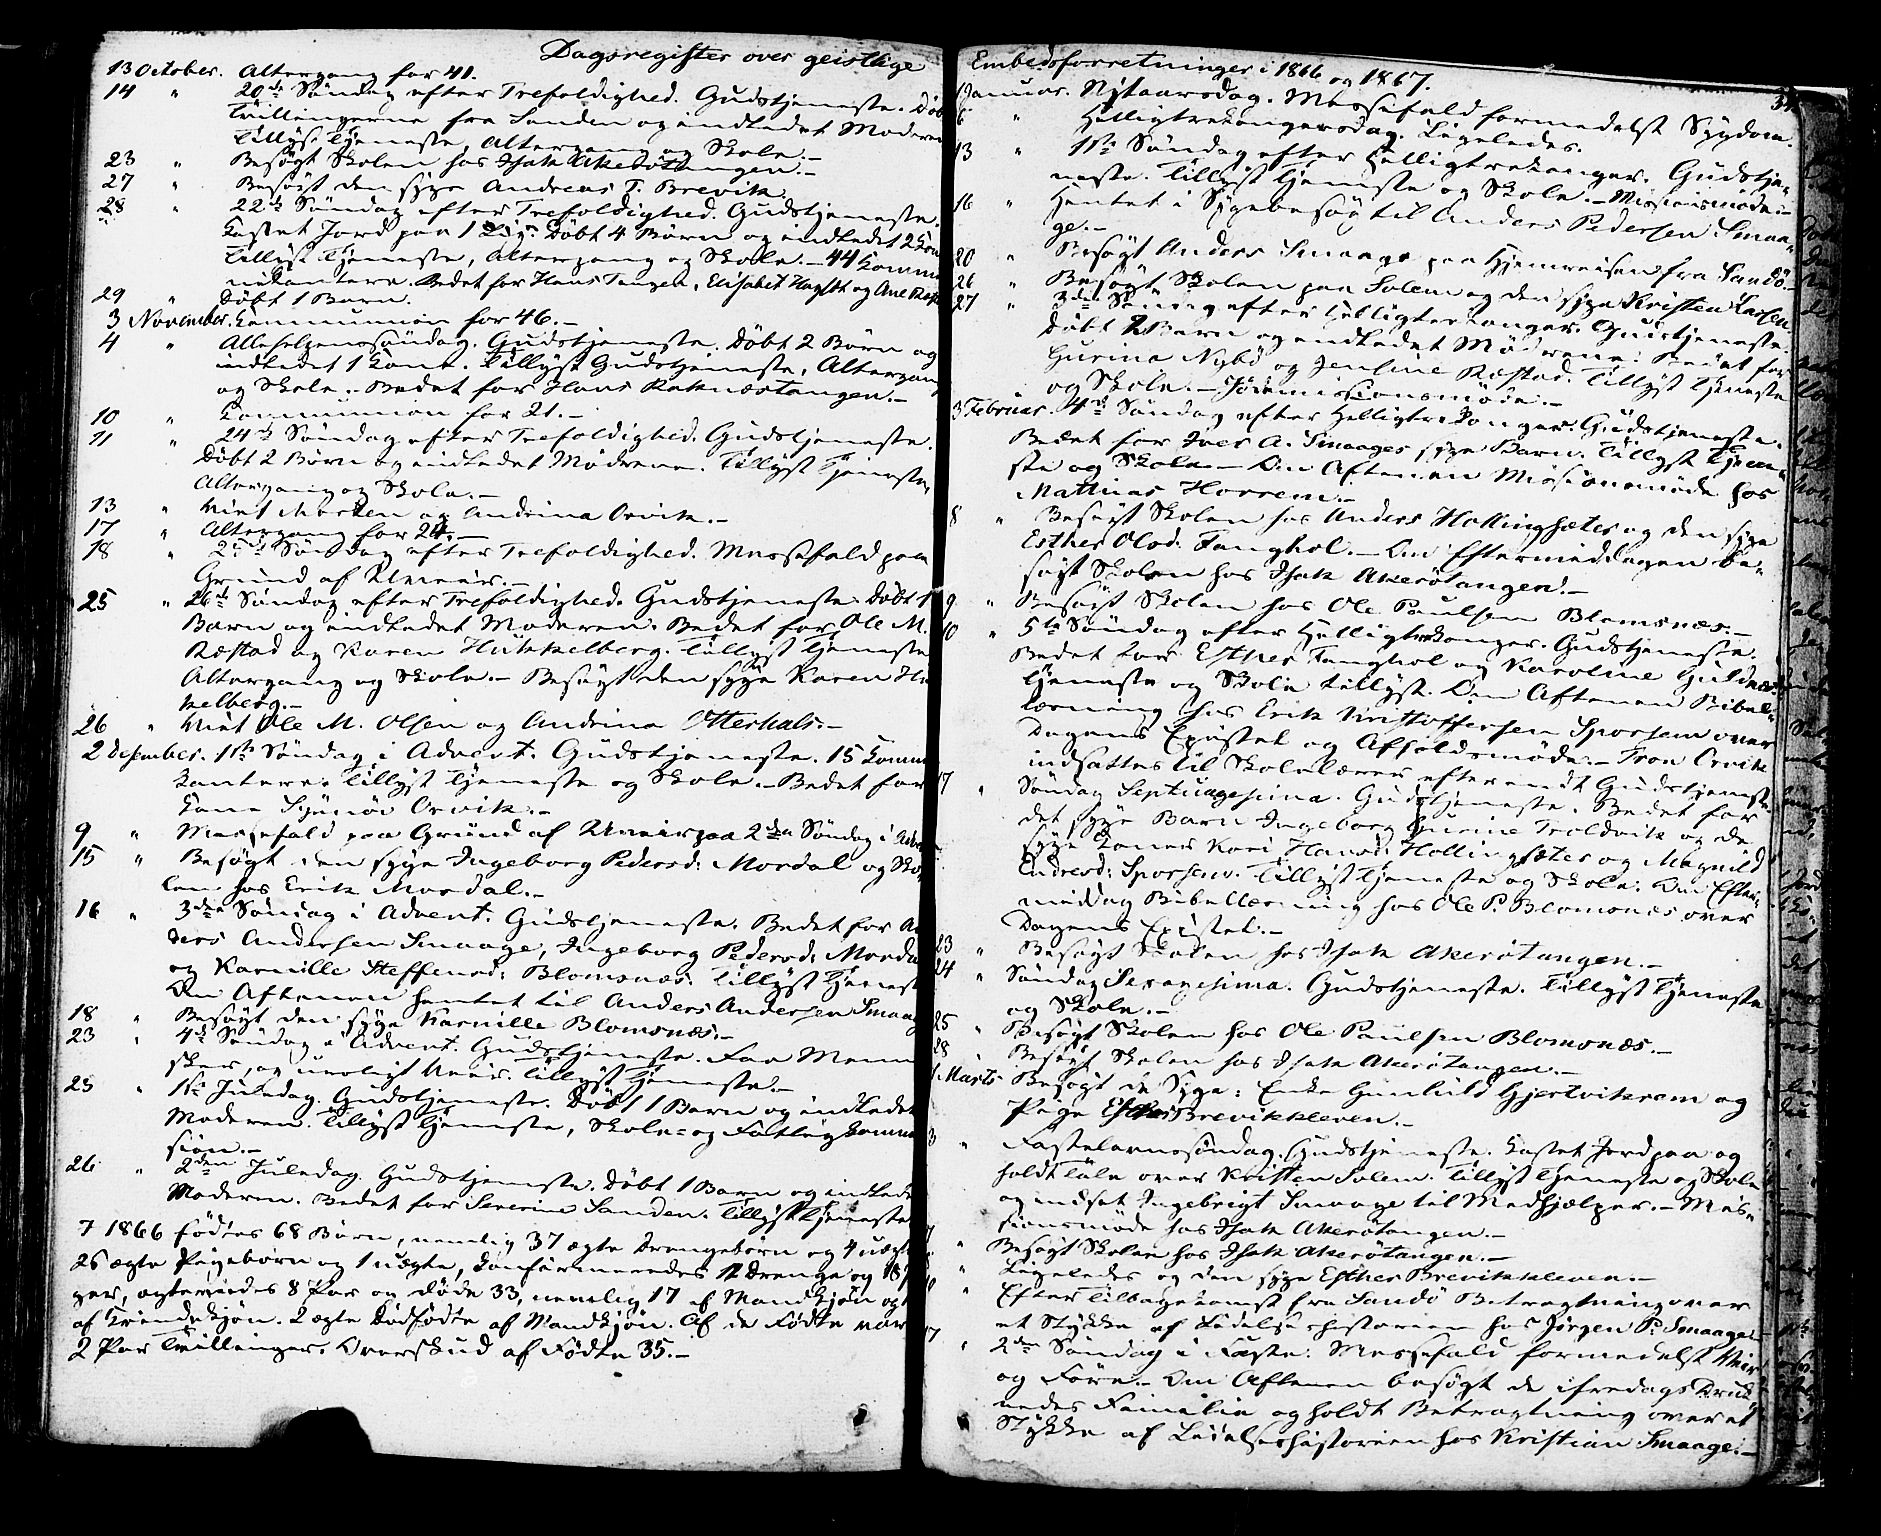 Dagsregister over geistlige
13 October. Altergang for 41.
14 " 20de Søndag efter Trefoldighed. Gudstjeneste. Døbt
Tvillingerne fra Sanden og indledet Moderen
Tillyst Tjeneste, Altergang og Skole.-
23 " Besøgt Skolen hos Isak Akerøtangen.-
27 " Besøgt den syge Andreas T. Brevik.
28 " 22de Søndag efter Trefoldighed. Gudstjeneste.
Kastet Jord paa 1 Lig. Døbt 4 Børn og indledet 2 Kon
Tillyst Tjeneste, Altergang og Skole.- 44 Kommu
nikantere. Bedet for Hans Tangen, Elisabet og Ane
29 " Døbt 1 Barn.
3 November. Kommunion for 46.-
4 " Allehelgenssøndag. Gudstjeneste. Døbt 2 Børn og
indledet 1 Kone. Tillyst Gudstjeneste, Altergang
og Skole.- Bedet for Hans Raknæstangen.-
10 " Kommunion for 21.-
11 " 24de Søndag efter Trefoldighed. Gudstjeneste.
Døbt 2 Børn og indledet Mødrene. Tillyst Tjeneste,
Altergang og Skole.-
13 " Viet Morten og Andrina Orvik.-
17 " Altergang for 24.-
18 " 25de Søndag efter Trefoldighed. Messefald paa
Grund af Uveir.-
25 " 26de Søndag efter Trefoldighed. Gudstjeneste. Døbt 1
Barn og indledet Moderen. Bedet for Ole M.
Ræstad og Karen Hukkelberg. Tillyst Tjeneste
Altergang og Skole.- Besøgt den syge Karen Hu
kelberg.-
26 " Viet Ole M. Olsen og Andrina Otterhals.-
2 Desember. 1ste Søndag i Advent. Gudstjeneste. 15 Kommu
kantere. Tillyst Tjeneste og Skole.- Bedet for
Kone Synnøv Orvik.-
9 " Messefald paa Grund af Uveir paa 2den Søndag i Adve
15 " Besøgt den syge Ingeborg Pedersd: Mordal og Sko-
len hos Erik Mordal.-
16 " 3die Søndag i Advent. Gudstjeneste. Bedet for An
ders Andersen Smaage, Ingeborg Pedersd: Mordal
og Karnille Steffensd: Blomsnæs. Tillyst Tjeneste
Om Aftenen hentet til Anders Andersen Smaag
18 " Besøgt den syge Karnille Blomsnæs.-
23 " 4de Søndag i Advent. Gudstjeneste. Faa Menne
sker, og uroligt Veir. Tillyst Tjeneste.-
25 " 1ste Juledag. Gudstjeneste. Døbt 1 Barn og indledet
Moderen. Tillyst Tjeneste, Skole- og Fattigkommi
sion.-
26 " 2den Juledag. Gudstjeneste. Døbt 1 Barn og indlede
Moderen. Bedet for Severine Sanden. Tillyst Tjeneste
I 1866 fødtes 68 Børn, nemlig 37 ægte Drengebørn og 4 uægt
26 ægte Pigebørn og 1 uægte, konfirmeredes 12 Drenge og 18
ger, ægteviedes 8 Par og døde 33, nemlig 17 af Mandkjøn og
af Kvindekjøn. 2 ægte Dødfødte af Mandkjøn. Af de Fødte var
2 Par Tvillinger. Overskud af Fødte 35.-
Embedsforretninger i 1866 og 1867.
1 Januar. Nytaarsdag. Messefald formedelst Sygdom.
6 " Helligtrekongersdag. Ligeledes.
13 " 1ste Søndag efter Helligtrekonger. Gudstje-
neste. Tillyst Tjeneste og Skole.- Missionsmøde.-
16 " Hentet i Sygebesøg til Anders Pedersen Smaa-
ge.-
20 " Besøgt Anders Smaage paa Hjemreisen fra Sandø.-
26 " Besøgt Skolen paa Solem og den syge Kristen Larsen
27 " 3die Søndag efter Helligtrekonger. Gudstjeneste.
Døbt 2 Børn og indledet Mødrene. Bedet for
Gurina Nybø og Jensine Ræstad. Tillyst Tjeneste
og Skole.- Jødemissionsmøde.-
3 Februar. 4de Søndag efter Helligtrekonger. Gudstjeneste.
Bedet for Iver A. Smaages syge Barn. Tillyst Tjene-
ste og Skole.- Om Aftenen Missionsmøde hos
Mathias Horrem.-
8 " Besøgt Skolen hos Anders Hollingsæter og den syge
Esther Olsd. Tanghol.- Om Eftermiddagen be-
søgt Skolen hos Isak Akerøtangen.-
9 " Besøgt Skolen hos Ole Paulsen Blomsnæs.-
10 " 5te Søndag efter Helligtrekonger. Gudstjeneste.
Bedet for Esther Tanghol og Karoline Guldnæs.
Tjeneste og Skole tillyst. Om Aftenen Bibel-
læsning hos Erik Kristoffersen Sporsem over
Dagens Epistel og Afholdsmøde.- Tron Orvik
indsattes til Skolelærer efter endt Gudstjeneste.
17 " Søndag Septuagesima. Gudstjeneste. Bedet for
det syge Barn Ingeborg Gurine Troldvik og de
syge Koner Kari Hansd: Hollingsæter og Magnild
Endresd: Sporsem. Tillyst Tjeneste og Skole. Om Efter-
middag Bibellæsning hos Ole P. Blomsnæs over
Dagens Epistel.-
23 " Besøgt Skolen hos Isak Akerøtangen.-
24 " Søndag Sexagesima. Gudstjeneste. Tillyst Tjeneste
og Skole.-
25 " Besøgt Skolen hos Ole Paulsen Blomsnæs.-
28 " Besøgt Skolen hos Isak Akerøtangen.-
1 Marts Besøgt de Syge: Enke Gunhild Gjertvikrem og
Pige Esther Brevikkleven.-
3 " Fastelavnssøndag. Gudstjeneste. Kastet Jord paa og
holdt Tale over Kristen Solem. Tillyst Tjeneste og Skole
og indsat Ingebrigt Smaage til Medhjælper.- Mis-
sionsmøde hos Isak Akerøtangen.-
7 " Besøgt Skolen hos Isak Akerøtangen.-
" Ligeledes og den syge Esther Brevikkleven.-
10 " Efter Tilbagekomst fra Sandø Betragtning over
et Stykke af Lidelseshistorien hos Jørgen P. Smaage.-
17 " 2den Søndag i Faste. Messefald formedelst Veir
og Føre.- Om Aftenen besøgt de ifredags Druk
nedes Familie og holdt Betragtning over et
Stykke af Lidelseshistorien hos Kristian Smaage.-